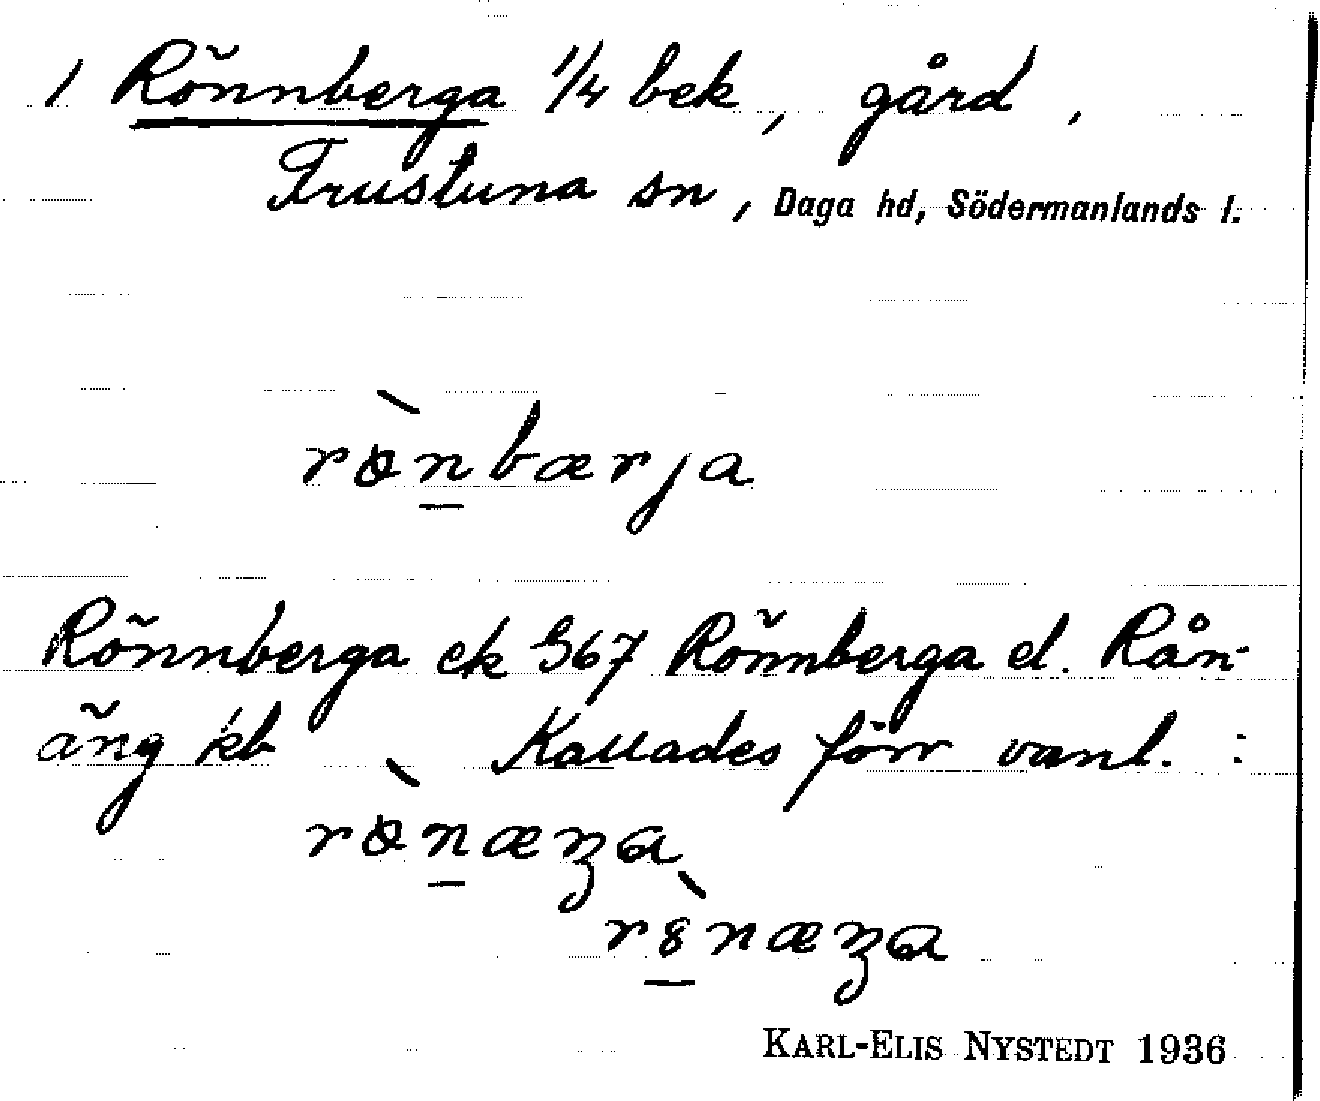 1 Rönnberga 1/4 bek, gård.
Frustuna sn, Daga hd, Södermanlands l.
rò̵nbærja
Rönnberga ek 367 Rönnberga el. Rån-
äng kb Kallades förr vanl. :
KARL-ELIS NYSTEDT 1936